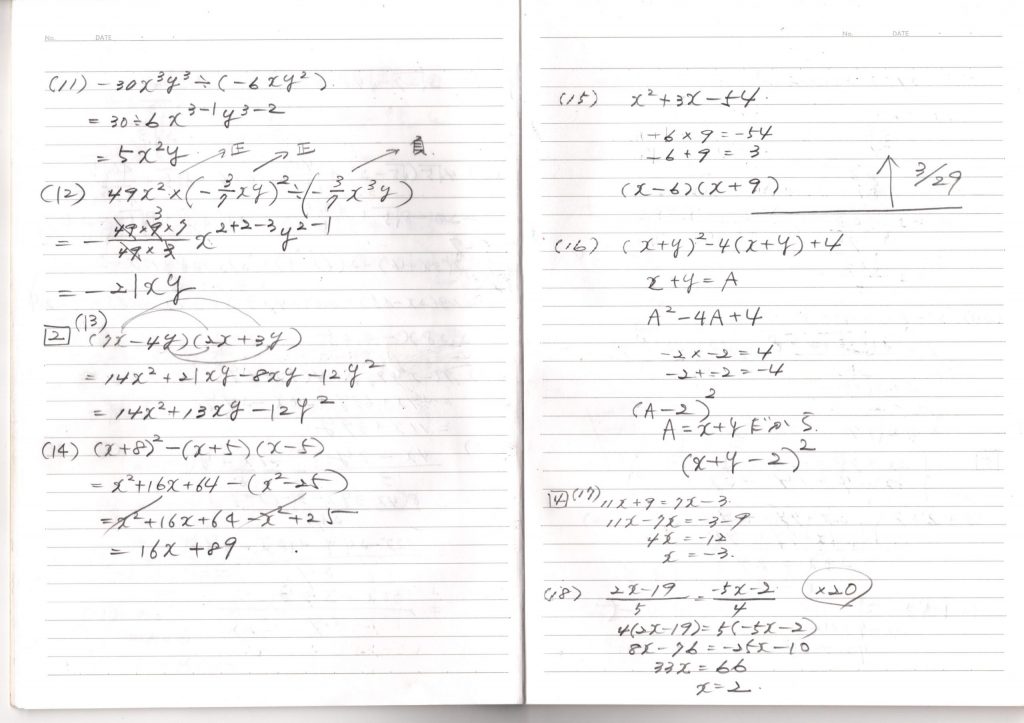 No. DATE
(11) -30x³y³÷(-6xy²)
= 30÷6 x³⁻¹y³⁻²
= 5x²y 正 正 負
(12) 49x²×(-3/7 xy)²÷(-3/7 x³y)
= - (49×9×7)/(49×3) x²⁺²⁻³y²⁻¹
3
= -21xy
2 (13) (7x-4y)(2x+3y)
= 14x²+21xy-8xy-12y²
= 14x²+13xy-12y²
(14) (x+8)²-(x+5)(x-5)
= x²+16x+64-(x²-25)
= x²+16x+64-x²+25
= 16x+89
No. DATE
(15) x²+3x-54
-6×9=-54
-6+9=3
(x-6)(x+9)
↑ 3/29
(16) (x+y)²-4(x+y)+4
x+y=A
A²-4A+4
-2×-2=4
-2+-2=-4
(A-2)²
A=x+yだから
(x+y-2)²
4 (17) 11x+9=7x-3
11x-7x=-3-9
4x=-12
x=-3.
(18) (2x-19)/5 = (-5x-2)/4 ×20
4(2x-19)=5(-5x-2)
8x-76=-25x-10
33x=66
x=2.